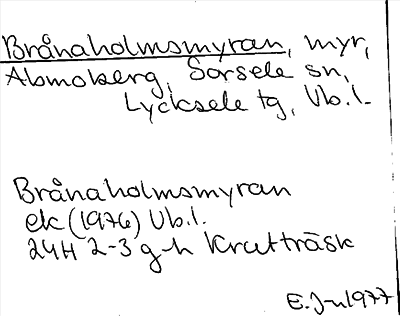 Brånaholmsmyran, myr,
Abmoberg, Sorsele sn,
Lycksele tg, Vb.l.
Brånaholmsmyran
ek (1976) Vb.l.
24H 2-3 g-h Kratträsk
E. J-n 1977